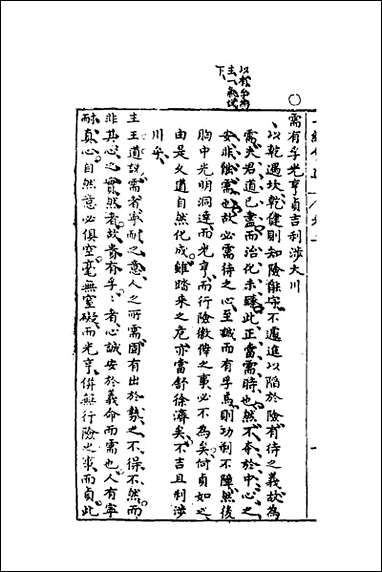 需有孚光亨貞吉利涉大川
以乾遇坎乾健則知險能守不遽進以陷於險有待之義故為
需夫君道已盡而治化未臻此正當需時也然不本於中心之
安非能需也故必需待之心至誠而有孚焉則功利不陣然後
胸中光明洞達而光亨而行險徼倖之事必不為矣何貞如之
由是久道自然化成雖踏來之危亦當舒徐濟矣不吉且利涉
川乎
主王道說需者寧耐之意人之所需固有出於勢之不得不然而
非其心之實然者故貴有孚孚者心誠安於義命而需也人有寧
耐真心自然意必俱空毫無窒礙而光亨併無行險之事而貞此